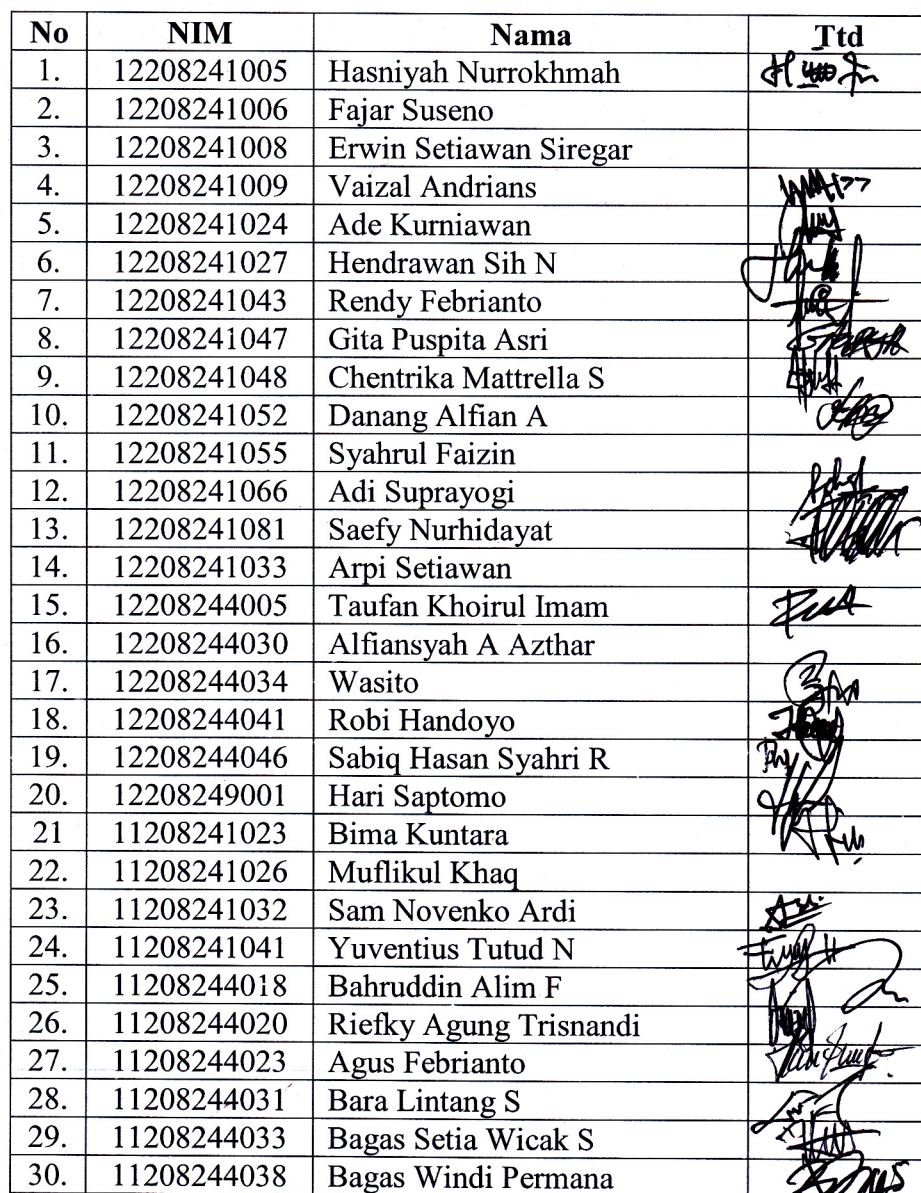 No NIM Nama Ttd
1. 12208241005 Hasniyah Nurrokhmah
2. 12208241006 Fajar Suseno
3. 12208241008 Erwin Setiawan Siregar
4. 12208241009 Vaizal Andrians
5. 12208241024 Ade Kurniawan
6. 12208241027 Hendrawan Sih N
7. 12208241043 Rendy Febrianto
8. 12208241047 Gita Puspita Asri
9. 12208241048 Chentrika Mattrella S
10. 12208241052 Danang Alfian A
11. 12208241055 Syahrul Faizin
12. 12208241066 Adi Suprayogi
13. 12208241081 Saefy Nurhidayat
14. 12208241033 Arpi Setiawan
15. 12208244005 Taufan Khoirul Imam
16. 12208244030 Alfiansyah A Azthar
17. 12208244034 Wasito
18. 12208244041 Robi Handoyo
19. 12208244046 Sabiq Hasan Syahri R
20. 12208249001 Hari Saptomo
21 11208241023 Bima Kuntara
22. 11208241026 Muflikul Khaq
23. 11208241032 Sam Novenko Ardi
24. 11208241041 Yuventius Tutud N
25. 11208244018 Bahruddin Alim F
26. 11208244020 Riefky Agung Trisnandi
27. 11208244023 Agus Febrianto
28. 11208244031 Bara Lintang S
29. 11208244033 Bagas Setia Wicak S
30. 11208244038 Bagas Windi Permana